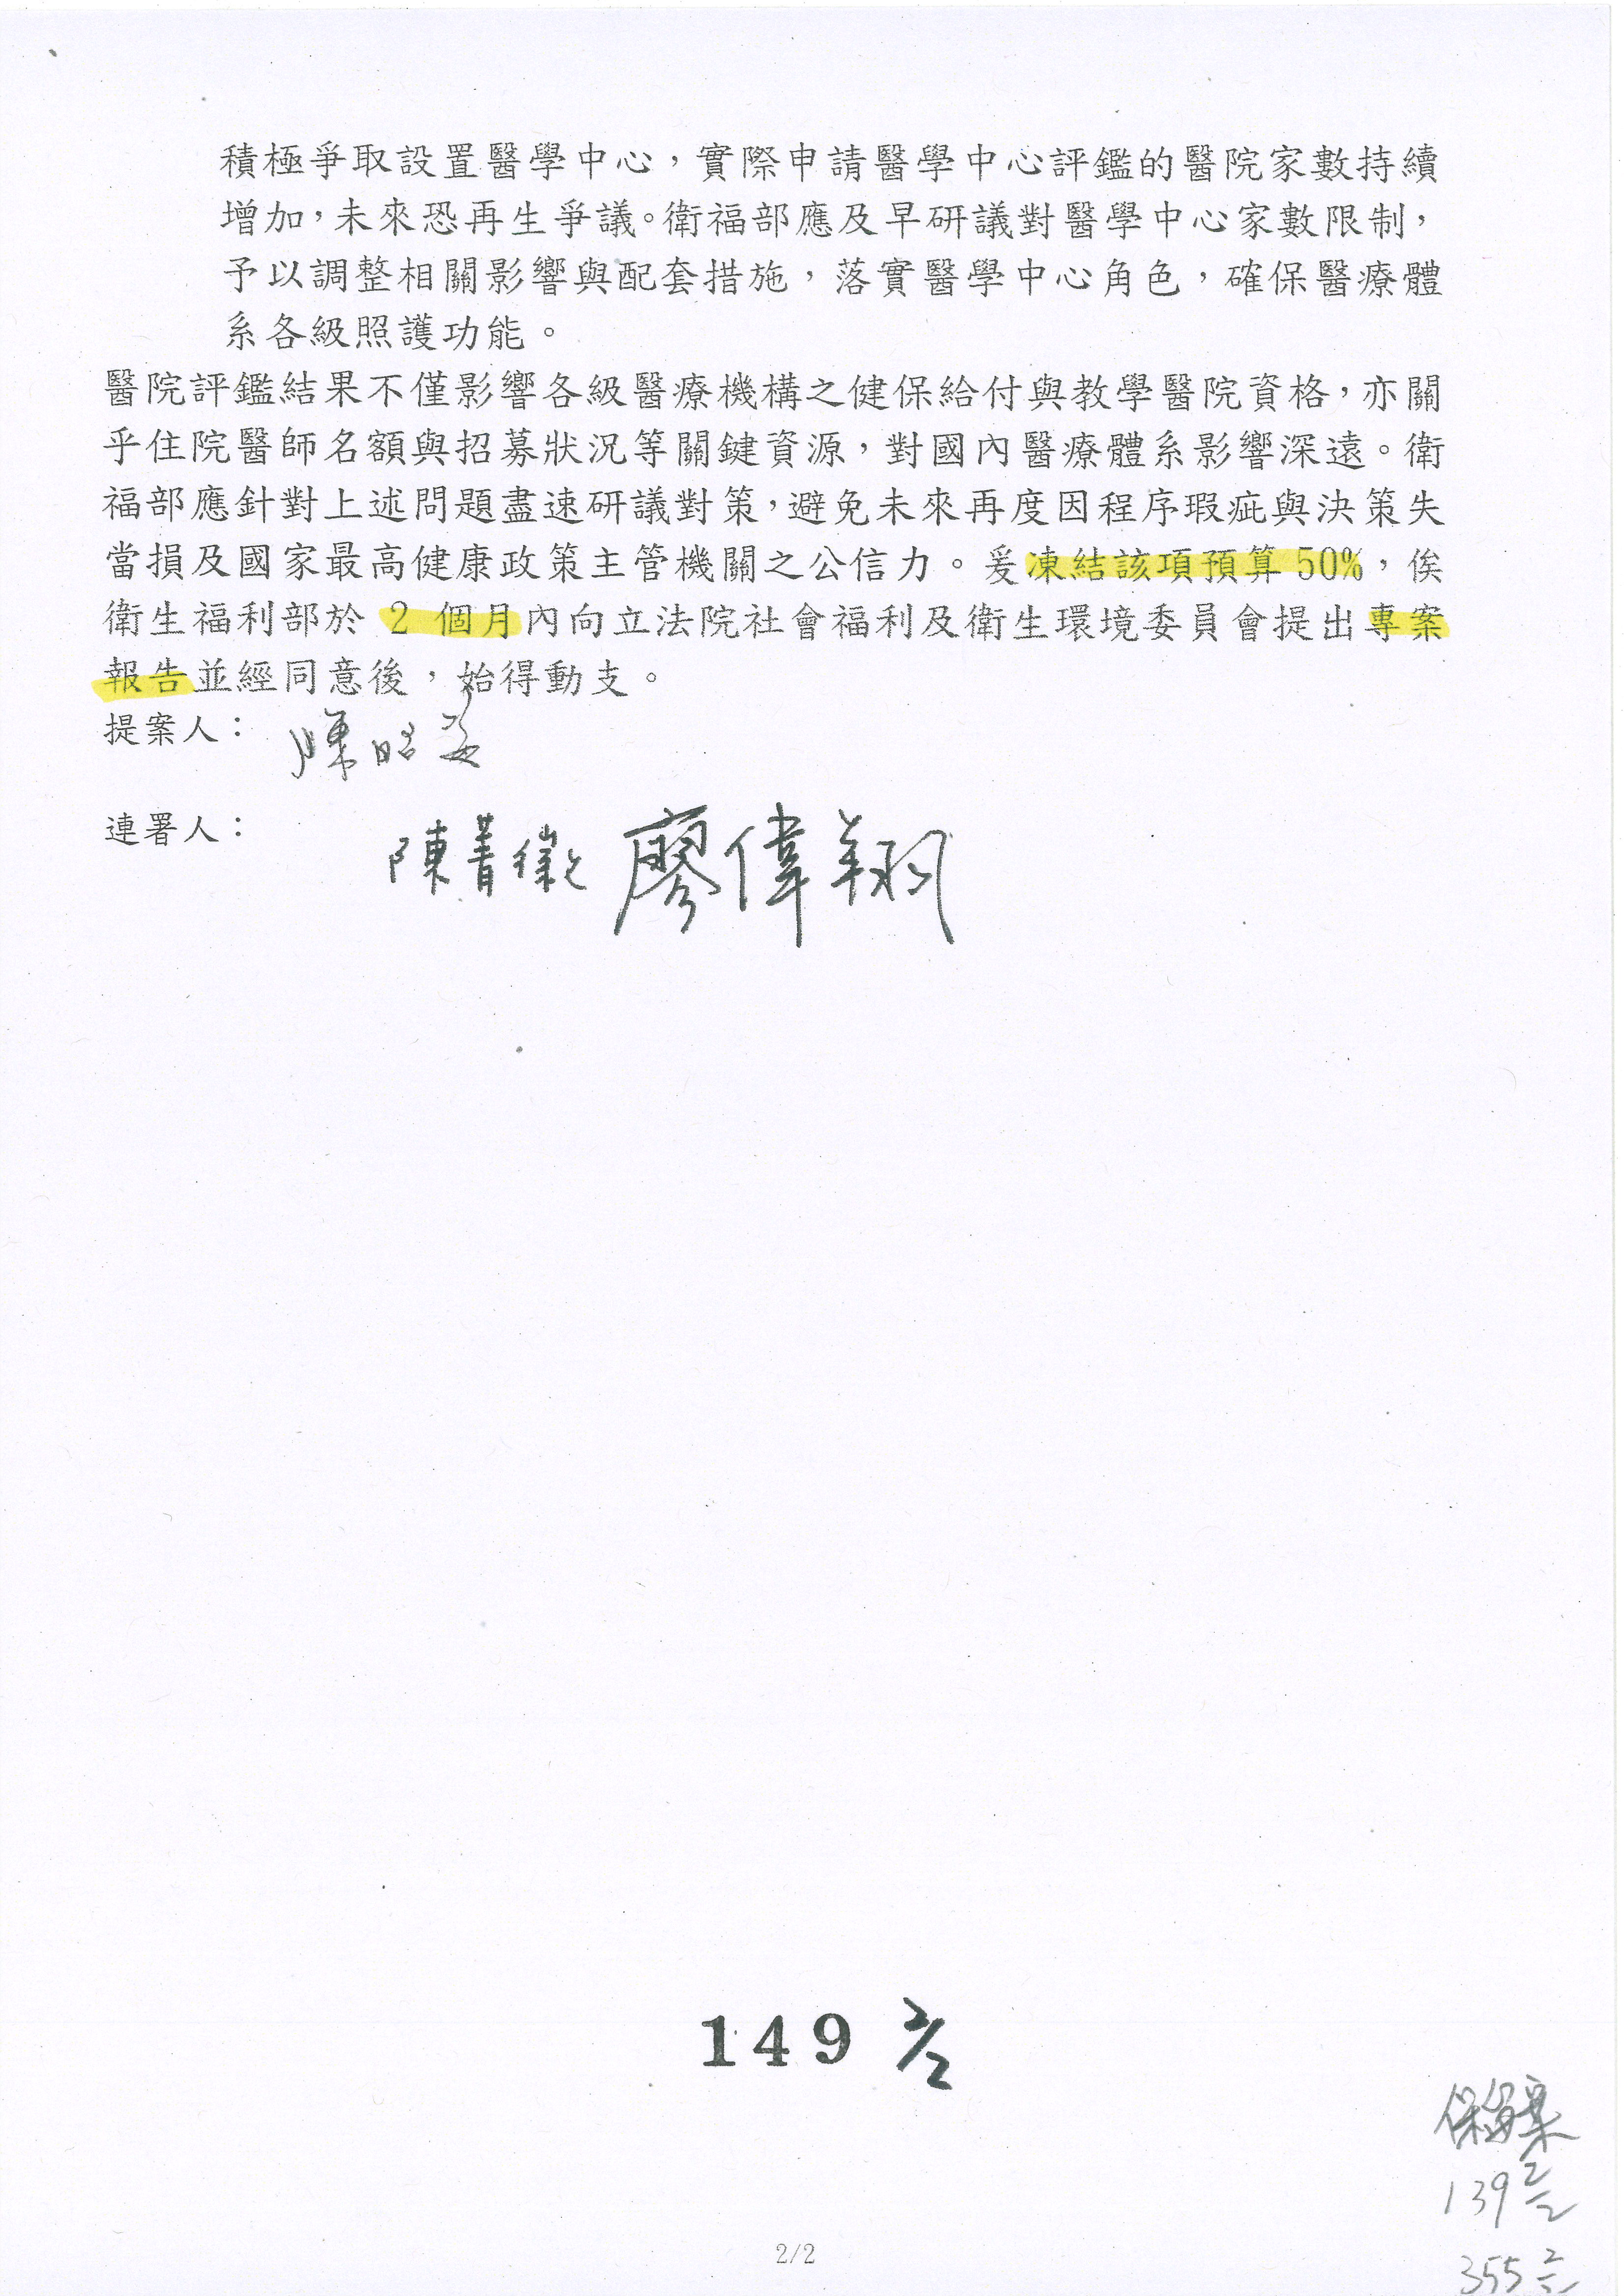 積極爭取設置醫學中心，實際申請醫學中心評鑑的醫院家數持續
增加，未來恐再生爭議。衛福部應及早研議對醫學中心家數限制，
予以調整相關影響與配套措施，落實醫學中心角色，確保醫療體
系各級照護功能。
醫院評鑑結果不僅影響各級醫療機構之健保給付與教學醫院資格，亦關
乎住院醫師名額與招募狀況等關鍵資源，對國內醫療體系影響深遠。衛
福部應針對上述問題盡速研議對策，避免未來再度因程序瑕疵與決策失
當損及國家最高健康政策主管機關之公信力。爰凍結該項預算 50%，俟
衛生福利部於 2 個月內向立法院社會福利及衛生環境委員會提出專案
報告並經同意後，始得動支。
提案人：陳昭姿
連署人：陳菁徽 廖偉翔
149 2/2
139 2/2
355 2/2
2/2